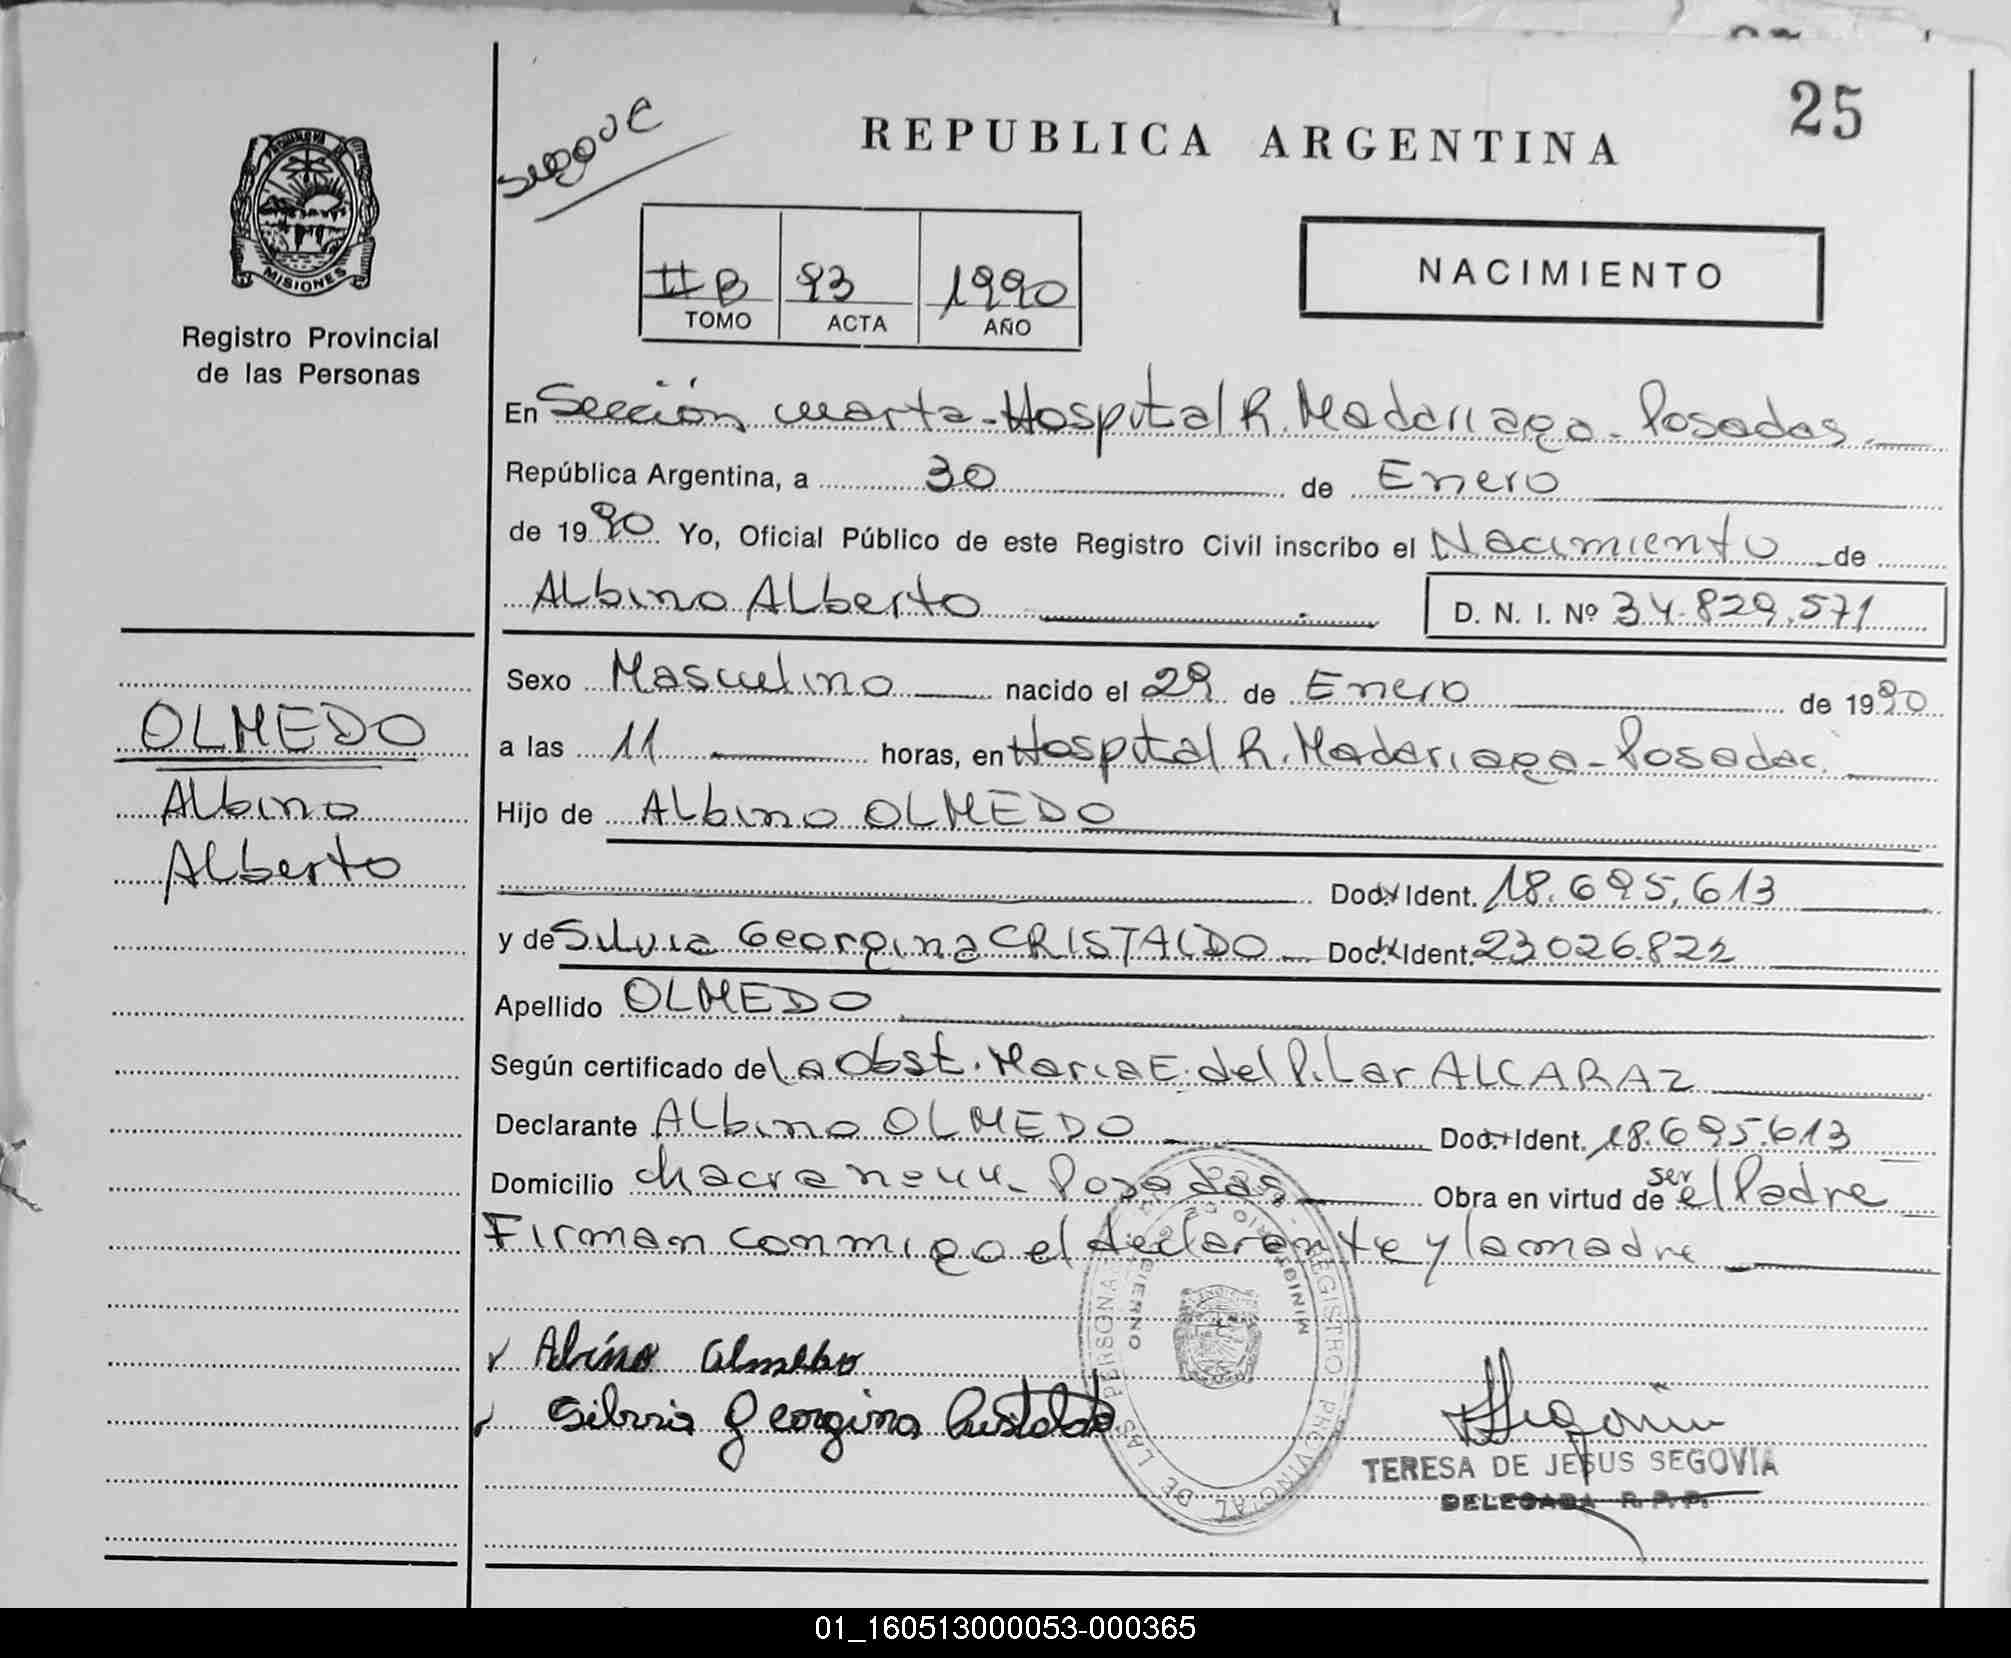 25
segque
REPUBLICA ARGENTINA
MISIONES
Registro Provincial
de las Personas
II B 93 1990
TOMO ACTA AÑO
NACIMIENTO
En Sección cuarta - Hospital R. Madariaga - Posadas.
República Argentina, a 30 de Enero
de 1990. Yo, Oficial Público de este Registro Civil inscribo el Nacimiento de
Albino Alberto D. N. I. Nº 34.829.571
Sexo Masculino nacido el 29 de Enero de 1990
a las 11 horas, en Hospital R. Madariaga - Posadas.
Hijo de Albino OLMEDO
Doc. Ident. 18.695.613
y de Silvia Georgina CRISTALDO Doc. Ident. 23026.822
Apellido OLMEDO
Según certificado de La Obst. Maria E. del Pilar ALCARAZ
Declarante Albino OLMEDO Doc. Ident. 18.695.613
Domicilio chacra Posadas Obra en virtud de ser el Padre
Firman conmigo el declarante y la madre
OLMEDO
Albino
Alberto
Albino Olmedo
Silvia Georgina Cristaldo
REGISTRO PROVINCIAL DE LAS PERSONAS
Segovia
TERESA DE JESUS SEGOVIA
DELEGADA R. P. P.
01_160513000053-000365